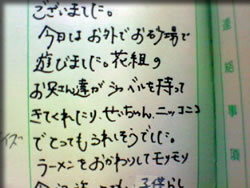 ございました。
今日はお外でお砂場で
遊びました。花組の
お兄さん達がシャベルを持って
きてくれたり、せいちゃん、ニッコニコ
でとってもうれしそうでした。
ラーメンをおかわりしてモリモリ
子供らし
連絡事項